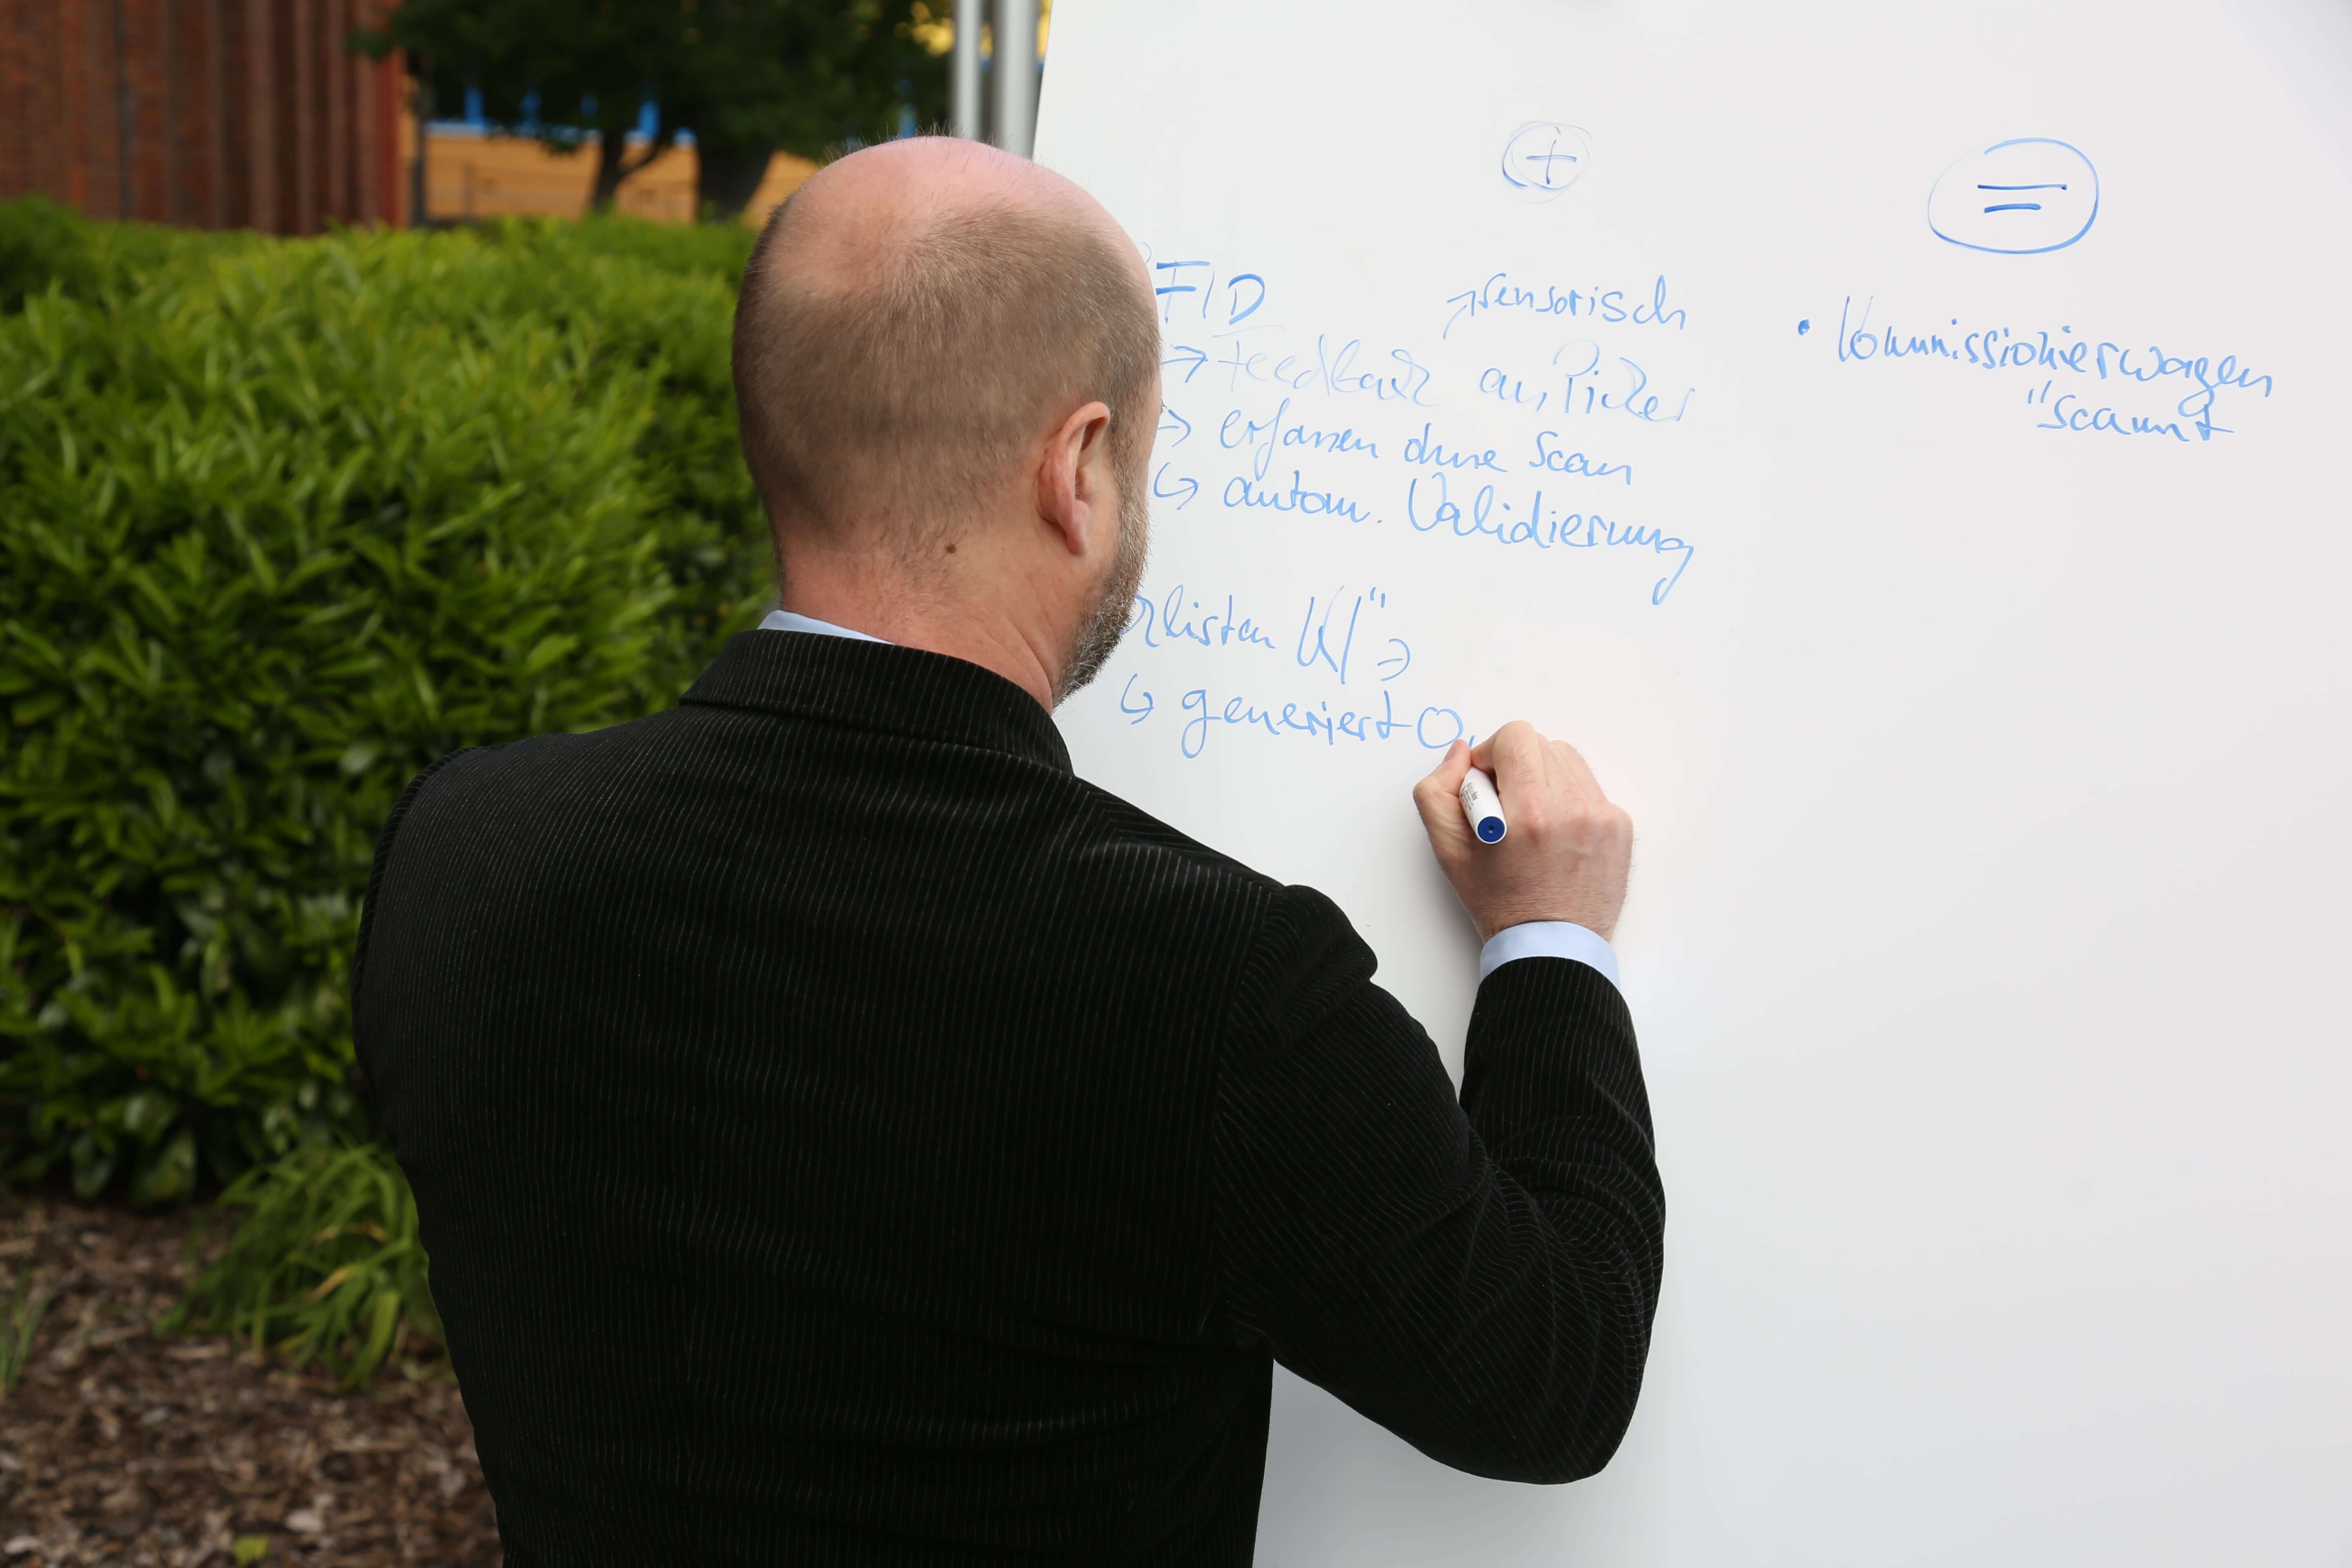 +
=
FID
↗ sensorisch
→ Feedback an Picker
→ erfassen ohne Scan
↳ autom. Validierung
listen KI" →
↳ generiert
• Kommissionierwagen
"scannt